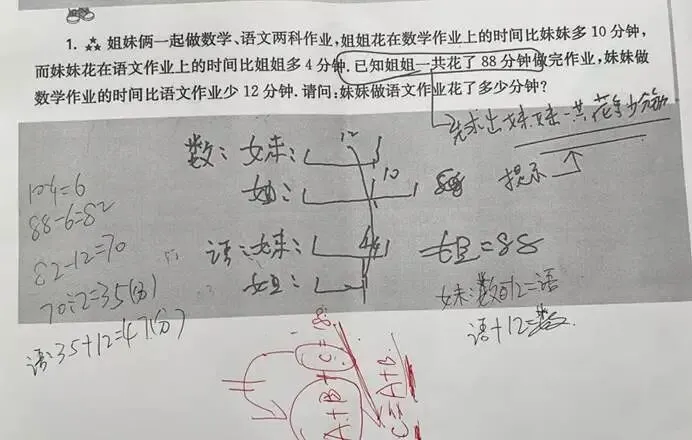 1. ☆☆ 姐妹俩一起做数学、语文两科作业,姐姐花在数学作业上的时间比妹妹多 10 分钟,
而妹妹花在语文作业上的时间比姐姐多 4 分钟.已知姐姐一共花了 88 分钟做完作业,妹妹做
数学作业的时间比语文作业少 12 分钟. 请问:妹妹做语文作业花了多少分钟?
先求出妹妹一共花多少分钟
提示
数: 妹:
12
姐:
10
语: 妹:
4
姐:
姐=88
妹:数+12=语
语+12=数
10-4=6
88-6=82
82-12=70
70÷2=35(分)
语:35+12=47(分)
A+B+C=88
C=A+B